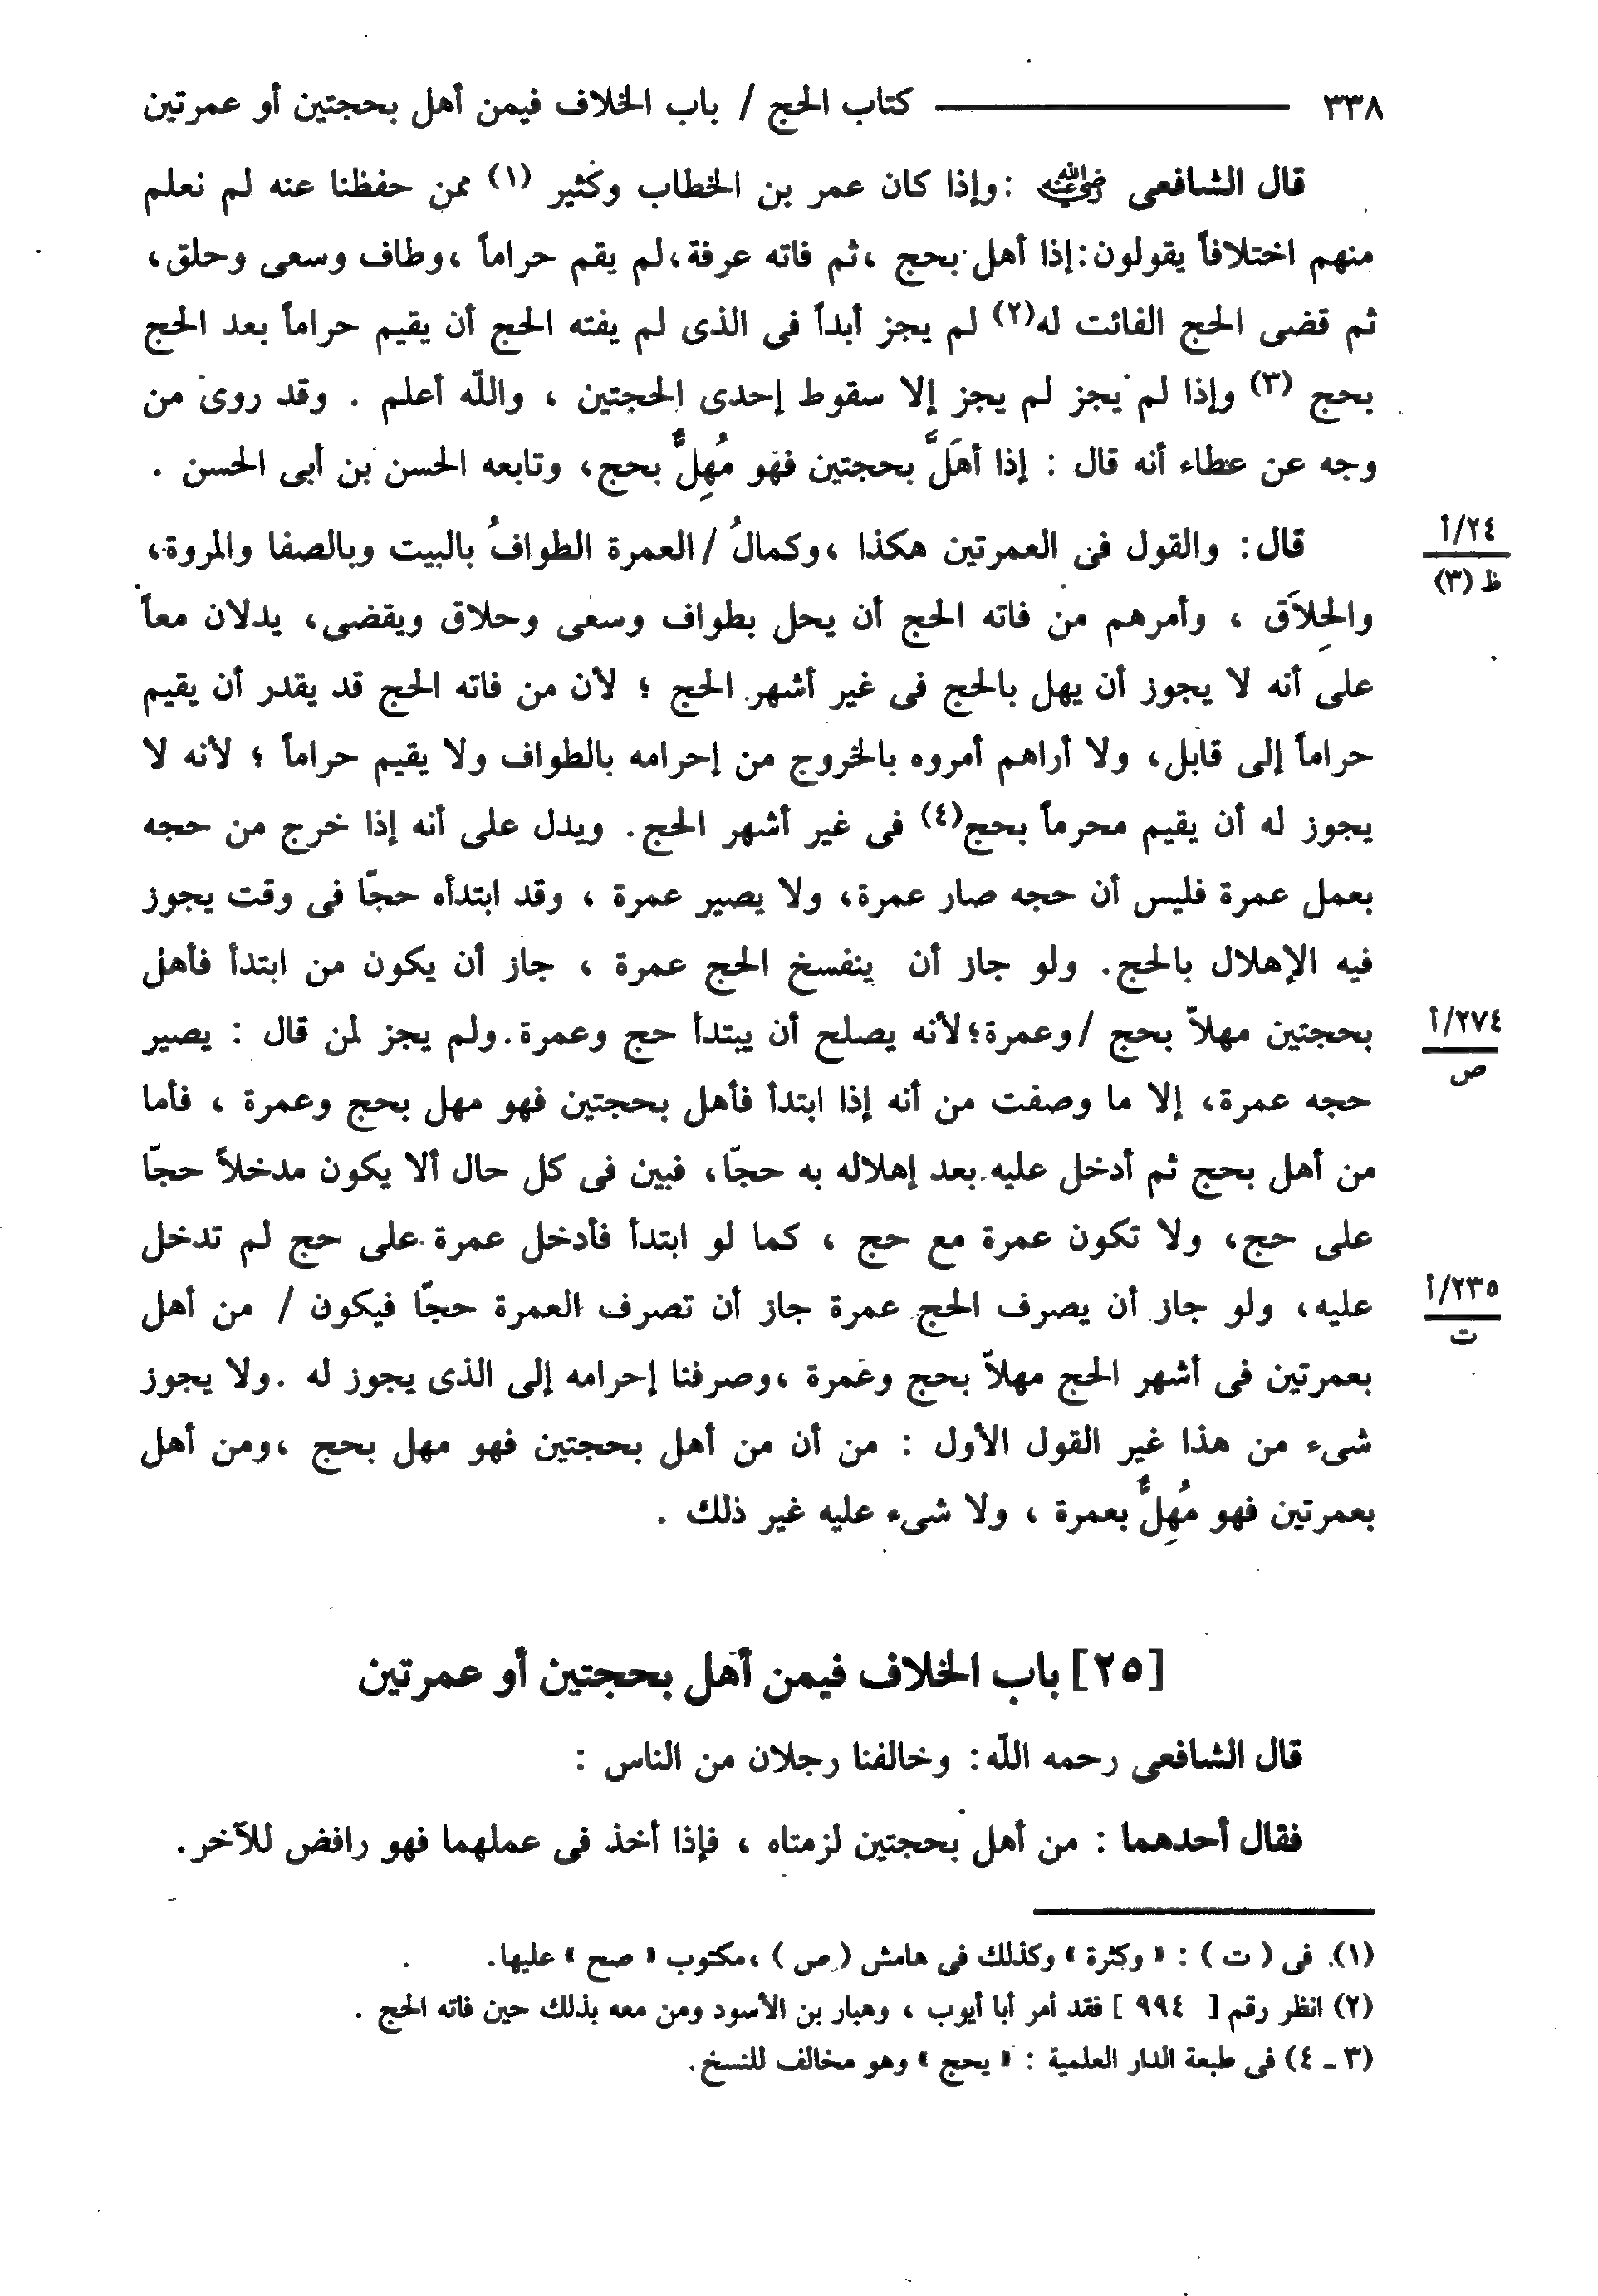 ٣٣٨ كتاب الحج / باب الخلاف فيمن أهل بحجتين أو عمرتين
قال الشافعى رضي الله عنه : وإذا كان عمر بن الخطاب وكثير (١) ممن حفظنا عنه لم نعلم
منهم اختلافاً يقولون : إذا أهل بحج ، ثم فاته عرفة ، لم يقم حراماً ، وطاف وسعى وحلق ،
ثم قضى الحج الفائت له(٢) لم يجز أبداً فى الذى لم يفته الحج أن يقيم حراماً بعد الحج
بحج (٣) وإذا لم يجز لم يجز إلا سقوط إحدى الحجتين ، واللّه أعلم . وقد روى من
وجه عن عطاء أنه قال : إذا أهَلَّ بحجتين فهو مُهِلٌّ بحج ، وتابعه الحسن بن أبى الحسن .
٢٤/أ
ظ (٣)
قال : والقول فى العمرتين هكذا ، وكمالُ / العمرة الطوافُ بالبيت وبالصفا والمروة ،
والحِلاَق ، وأمرهم من فاته الحج أن يحل بطواف وسعى وحلاق ويقضى ، يدلان معاً
على أنه لا يجوز أن يهل بالحج فى غير أشهر الحج ؛ لأن من فاته الحج قد يقدر أن يقيم
حراماً إلى قابل ، ولا أراهم أمروه بالخروج من إحرامه بالطواف ولا يقيم حراماً ؛ لأنه لا
يجوز له أن يقيم محرماً بحج(٤) فى غير أشهر الحج . ويدل على أنه إذا خرج من حجه
بعمل عمرة فليس أن حجه صار عمرة ، ولا يصير عمرة ، وقد ابتدأه حجّا فى وقت يجوز
فيه الإهلال بالحج . ولو جاز أن ينفسخ الحج عمرة ، جاز أن يكون من ابتدأ فأهل
٢٧٤/أ
ص
بحجتين مهلاّ بحج / وعمرة ؛ لأنه يصلح أن يبتدأ حج وعمرة . ولم يجز لمن قال : يصير
حجه عمرة ، إلا ما وصفت من أنه إذا ابتدأ فأهل بحجتين فهو مهل بحج وعمرة ، فأما
من أهل بحج ثم أدخل عليه بعد إهلاله به حجّا ، فبين فى كل حال ألا يكون مدخلاً حجّا
على حج ، ولا تكون عمرة مع حج ، كما لو ابتدأ فأدخل عمرة على حج لم تدخل
٢٣٥/أ
ت
عليه ، ولو جاز أن يصرف الحج عمرة جاز أن تصرف العمرة حجّا فيكون / من أهل
بعمرتين فى أشهر الحج مهلاّ بحج وعمرة ، وصرفنا إحرامه إلى الذى يجوز له . ولا يجوز
شىء من هذا غير القول الأول : من أن من أهل بحجتين فهو مهل بحج ، ومن أهل
بعمرتين فهو مُهِلٌّ بعمرة ، ولا شىء عليه غير ذلك .
[٢٥] باب الخلاف فيمن أهل بحجتين أو عمرتين
قال الشافعى رحمه اللّه : وخالفنا رجلان من الناس :
فقال أحدهما : من أهل بحجتين لزمتاه ، فإذا أخذ فى عملهما فهو رافض للآخر .
(١) فى ( ت ) : « وكثرة » وكذلك فى هامش ( ص ) ، مكتوب « صح » عليها .
(٢) انظر رقم [ ٩٩٤ ] فقد أمر أبا أيوب ، وهبار بن الأسود ومن معه بذلك حين فاته الحج .
(٣ ـ ٤) فى طبعة الدار العلمية : « يحج » وهو مخالف للنسخ .